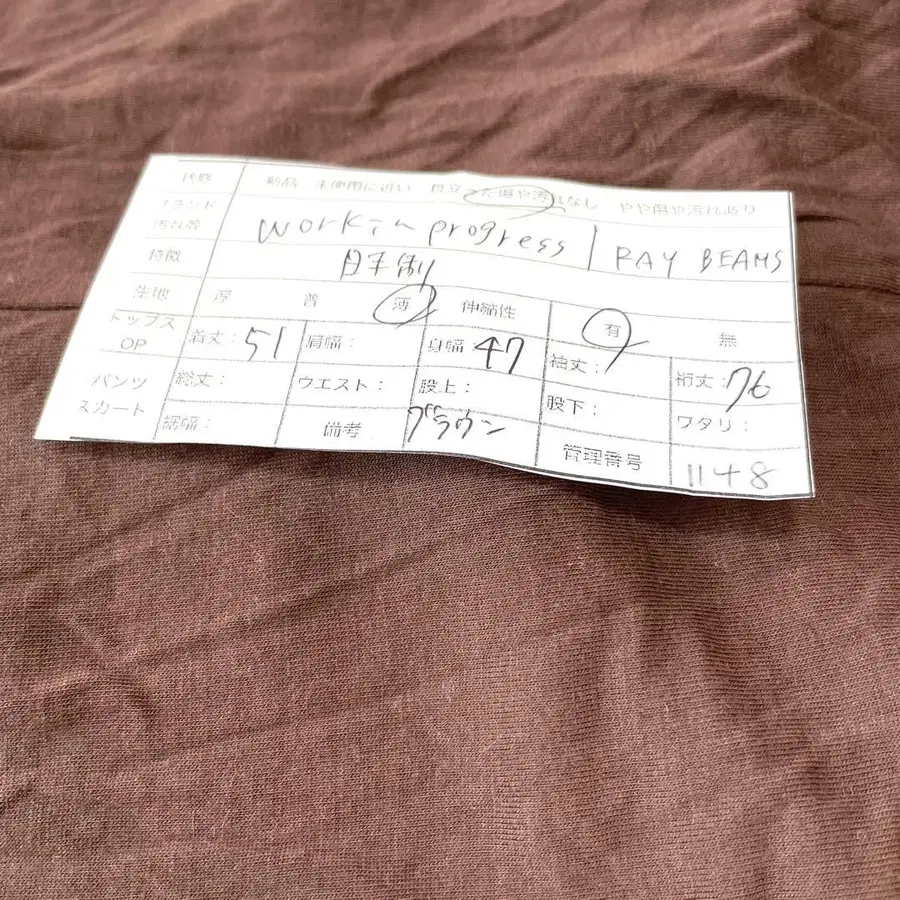 状態 新品 未使用に近い 目立った傷や汚れなし やや傷や汚れあり
ブランド work in progress | RAY BEAMS
汚れ等
特徴 日本製
生地 厚 普 薄 伸縮性 有 無
トップス OP 着丈:51 肩幅: 身幅:47 袖丈: 裄丈:76
パンツ スカート 総丈: ウエスト: 股上: 股下: ワタリ:
裾幅: 備考 ブラウン 管理番号 1148